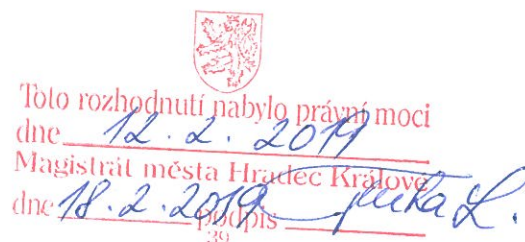 Toto rozhodnutí nabylo právní moci
dne 12. 2. 2019
Magistrát města Hradec Králové
dne 18. 2. 2019 podpis
39